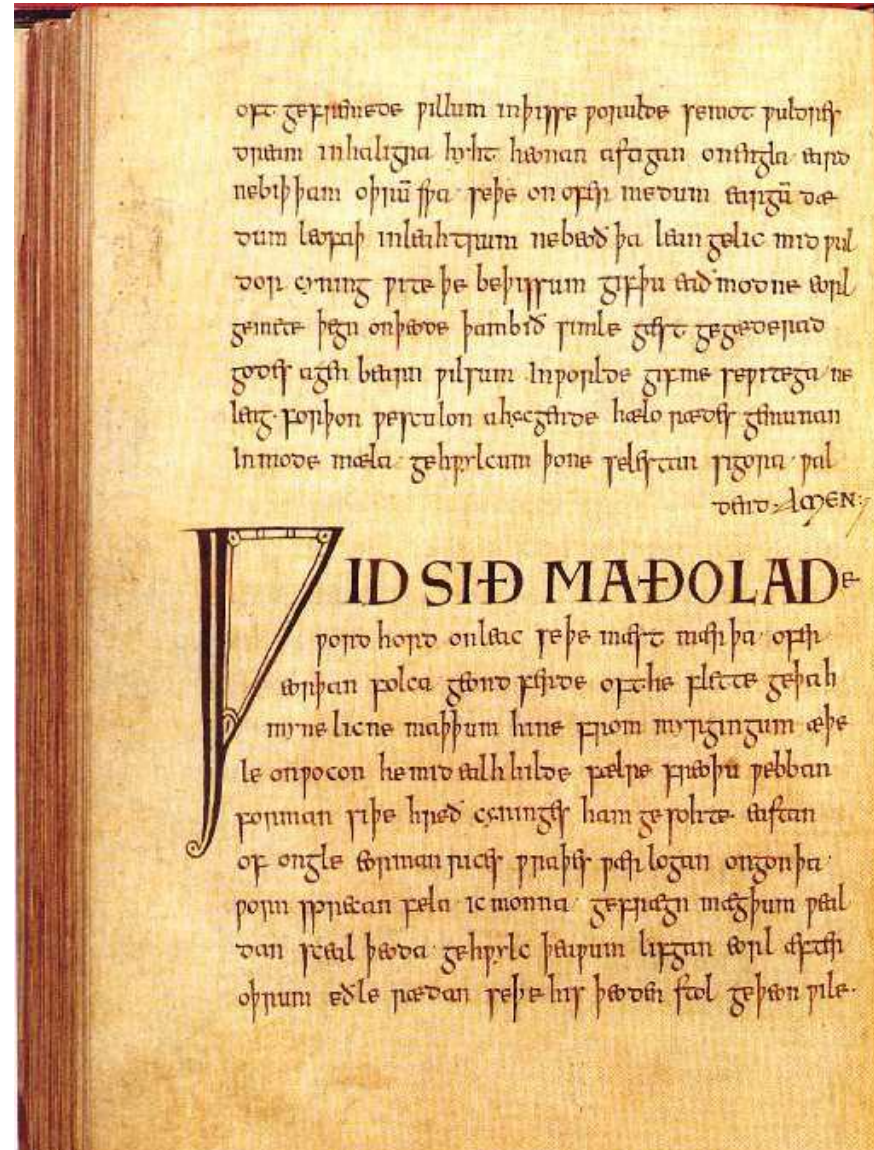 oft gefremede ƿillum inþisse ƿorulde semot ƿuldres
dream inhaligra hyht heonan astigan onengla eard
nebiþþam oþrū sƿa · seþe onofer medum eargū dæ
dum leofaþ inleahtrum nebeoð þa lean gelic mid ƿul
dor cyning ƿite þe beþissum gifþu eaðmodne eorl
gemete þegn onþeode þambið simle gæst gegæderad
godes agen bearn ƿilsum Inƿorlde gifme seƿitega ne
leag · forþon ƿesculon ahycgende hælo rædes gemunan
Inmode mæla gehƿylcum þone selestan sigora ƿal
dend AMEN:
ǷID SIÐ MAÐOLADe
ƿord hord onleac seþe mæst mærþa ofer
eorþan folca geond ferde oft he flette geþah
myne licne maþþum hine from myrgingum æþe
le onƿocon he mid ealh hilde fælre freoþu ƿebban
forman siþe hreð cyninges ham gesohte eastan
of ongle eorman rices ƿraþes ƿær logan ongon þa
ƿorn sprecan fela ic monna gefrægn mægþum ƿeal
dan sceal þeoda gehƿylc þeaƿum lifgan eorl æfter
oþrum eðle rædan seþe his þeoden stol geþeon ƿile ·